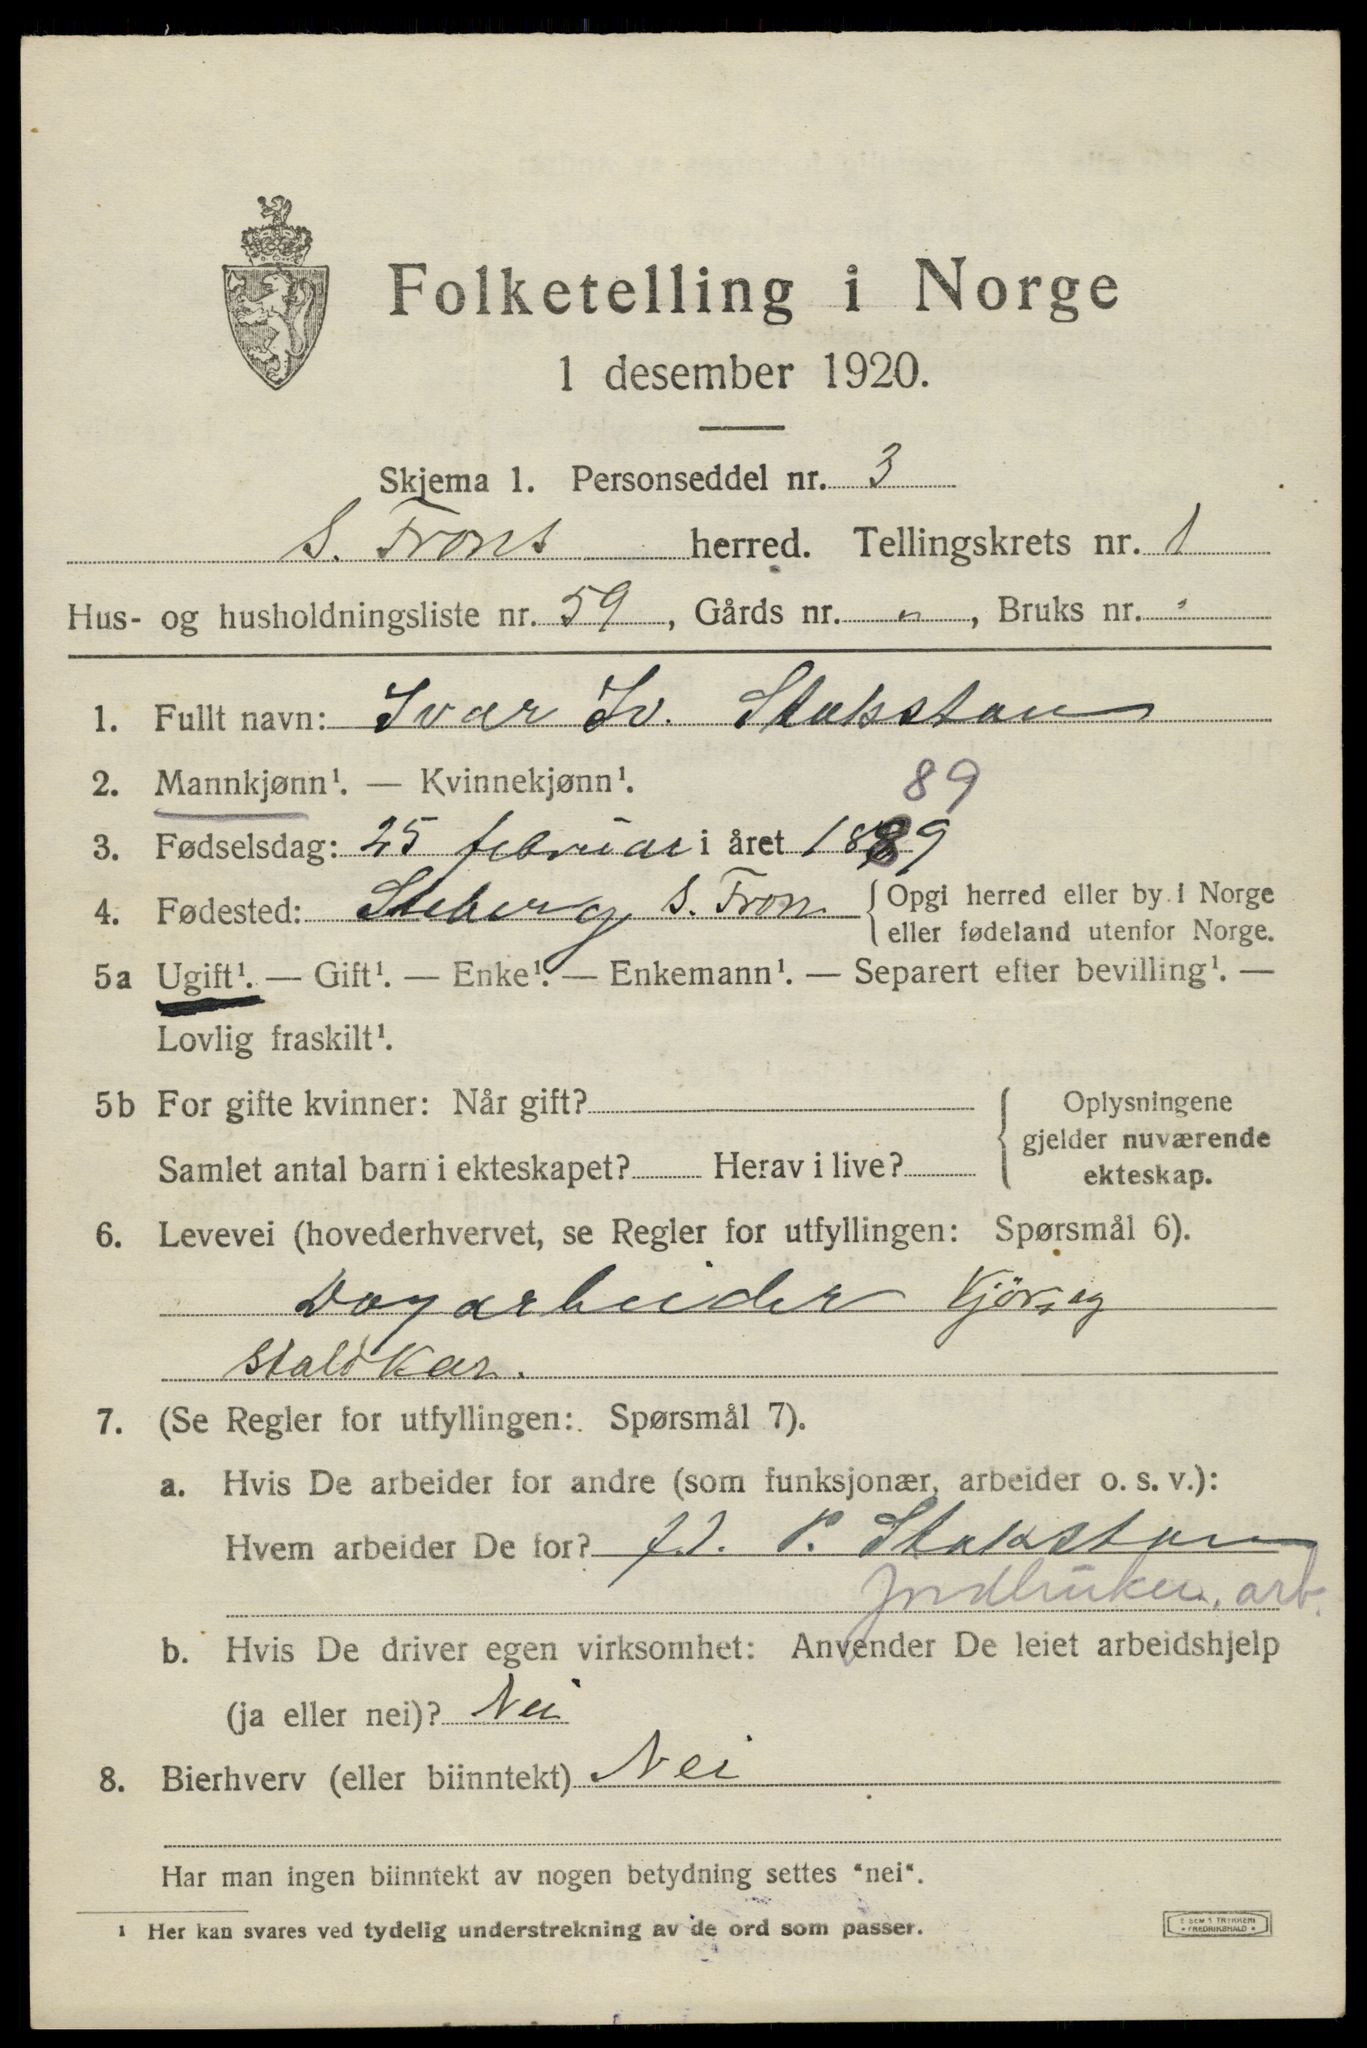 Folketelling i Norge
1 desember 1920.
Skjema 1. Personseddel nr. 3
S. Frons herred. Tellingskrets nr. 1
Hus- og husholdningsliste nr. 59, Gårds nr. „, Bruks nr.
1. Fullt navn: Ivar Iv. Stokstan
2. Mannkjønn¹. — Kvinnekjønn¹. 89
3. Fødselsdag: 25 februar i året 1889
4. Fødested: S. Fron {Opgi herred eller by i Norge
eller fødeland utenfor Norge.
5a Ugift¹. — Gift¹. — Enke¹. — Enkemann¹. — Separert efter bevilling¹. —
Lovlig fraskilt¹.
5b For gifte kvinner: Når gift? { Oplysningene
gjelder nuværende
Samlet antal barn i ekteskapet? Herav i live? ekteskap.
6. Levevei (hovederhvervet, se Regler for utfyllingen: Spørsmål 6).
Dagarbeider Kjør, og
staldkar.
7. (Se Regler for utfyllingen: Spørsmål 7).
a. Hvis De arbeider for andre (som funksjonær, arbeider o. s. v.):
Hvem arbeider De for? P. Stokstan
Jordbruker, arb.
b. Hvis De driver egen virksomhet: Anvender De leiet arbeidshjelp
(ja eller nei)? Nei
8. Bierhverv (eller biinntekt) Nei
Har man ingen biinntekt av nogen betydning settes "nei".
¹ Her kan svares ved tydelig understrekning av de ord som passer.
FREDRIKSHALD